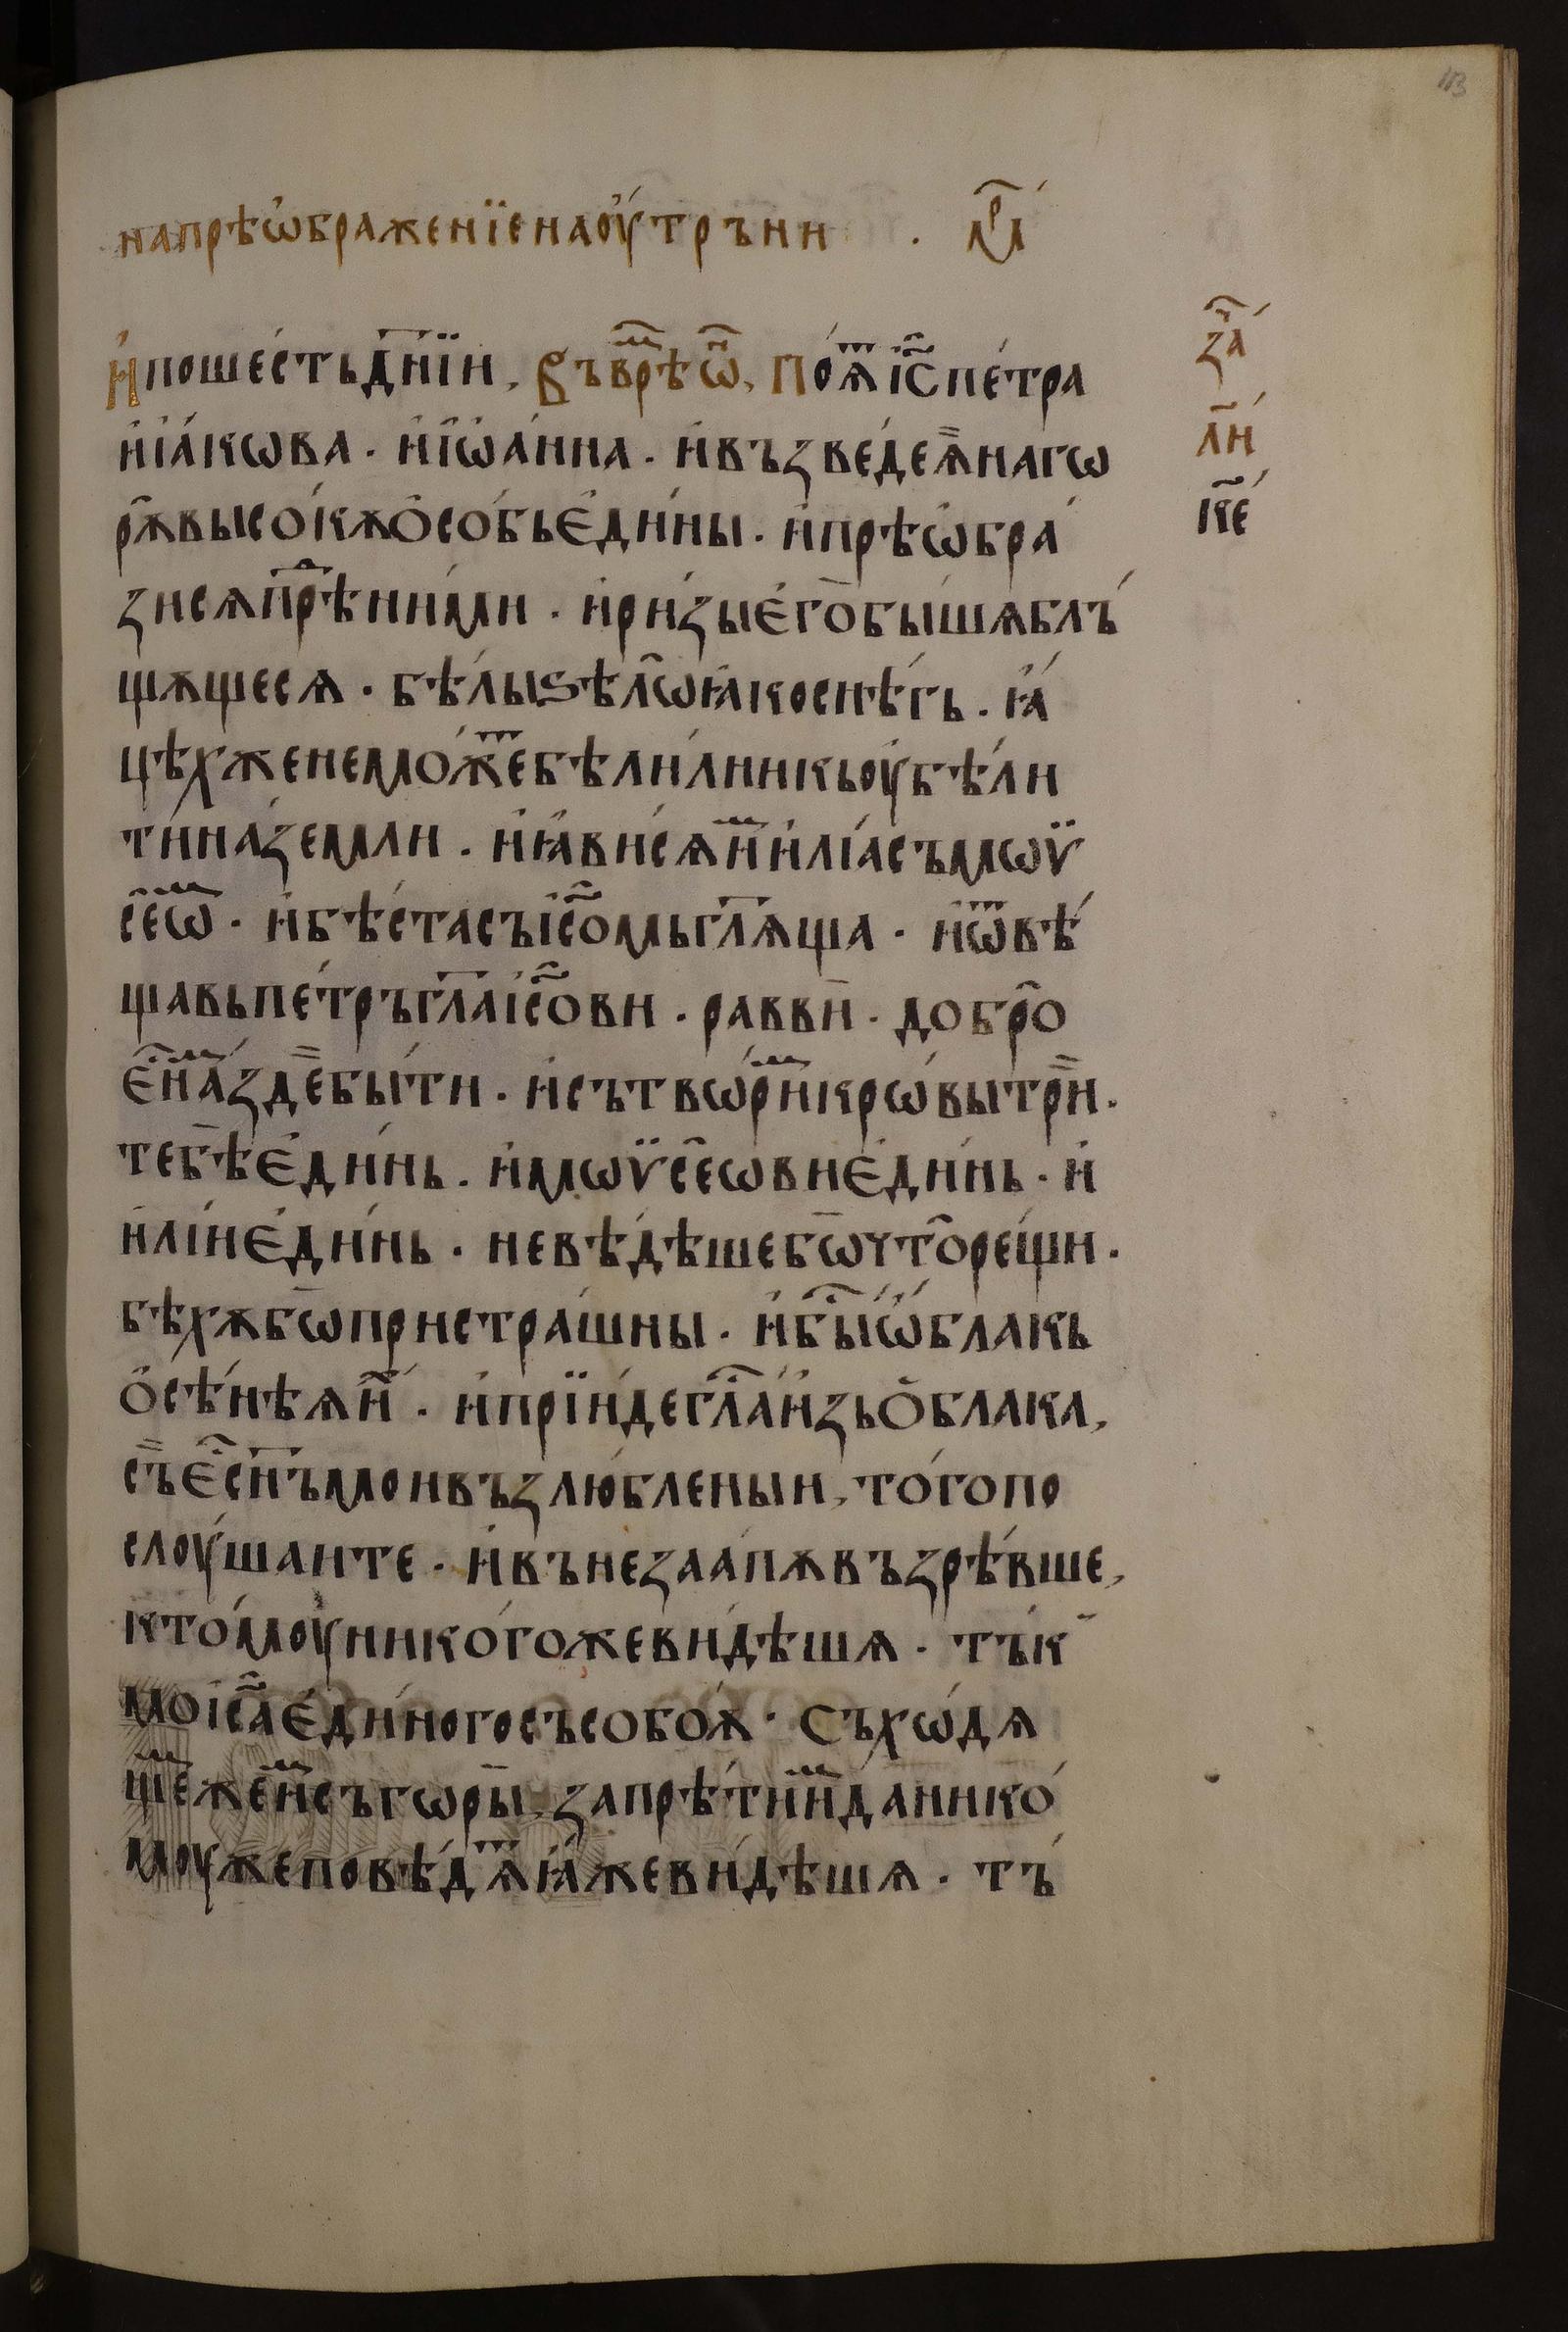 напрѣѡ҆браженїенаоу҆́трънн . мр҃
И҆пошесть дн҃їи, Въврѣѡ҆, Поѧⷮ і҆с҃ пе́тра
за҃
и҆і҆а́кѡва · и҆і҆ѡа́нна · и҆възведеѧ̀нагѡ
ли҃
рѫ̀высо́кѫо҆со́бьє҆ди́ны · и҆прѣѡ҆бра́
ке҃
зисѧпрⷣѣни́ми · и҆ри́зыє҆го̀бы́шѧблъ́
щѧщесѧ · бѣ́лыѕѣлѡ̀ꙗ҆коснѣ́гь · ꙗ҆́
цѣхженемо́жеⷮбѣли́лникьоу҆бѣ́ли
тина́земли · и҆ꙗ҆ви́сѧиⷨи҆лі́асъмѡѵ̈
се́ѡⷨ · и҆бѣ́стасъі҆с҃омьгл҃ѧща · и҆ѿвѣ́
щавьпе́тръгл҃аі҆с҃ови · раввѝ · добро̀
є҆ⷭ҇наⷨздѐбы́ти · и҆сътвѡ́риⷨкрѡ́вытрѝ ·
тебѣ̀є҆ди́нь · и҆мѡѵ̈се́ѡвиє҆ди́нь · и҆
и҆лі́иє҆ди́нь · невѣ́дѣшебѡ̀что̀рещи́ ·
бѣхѫбѡ̀пристра́шны · и҆бы́ⷭ҇ѡ҆́блакь
о҆сѣ́нѣѧи҆̀ · и҆прїи́дегла́ⷭ҇и҆́зьо҆́блака,
съ̀є҆́ⷭ҇сн҃ъмоивъзлю́бленыи, то́гопо
слоу́шаите · и҆вънезаа́пѫвъзрѣ́вше,
ктомоу̀нико́гожеви́дѣшѧ · тъ́к
моі҆с҃ає҆ди́ногосъсобо́ѫ · Съхѡ́дѧ
щеⷨжеиⷨсъгѡры̀, запрѣтѝиⷨданико́
моужеповѣ́дѧⷮꙗ҆́жеви́дѣшѧ · тъ́